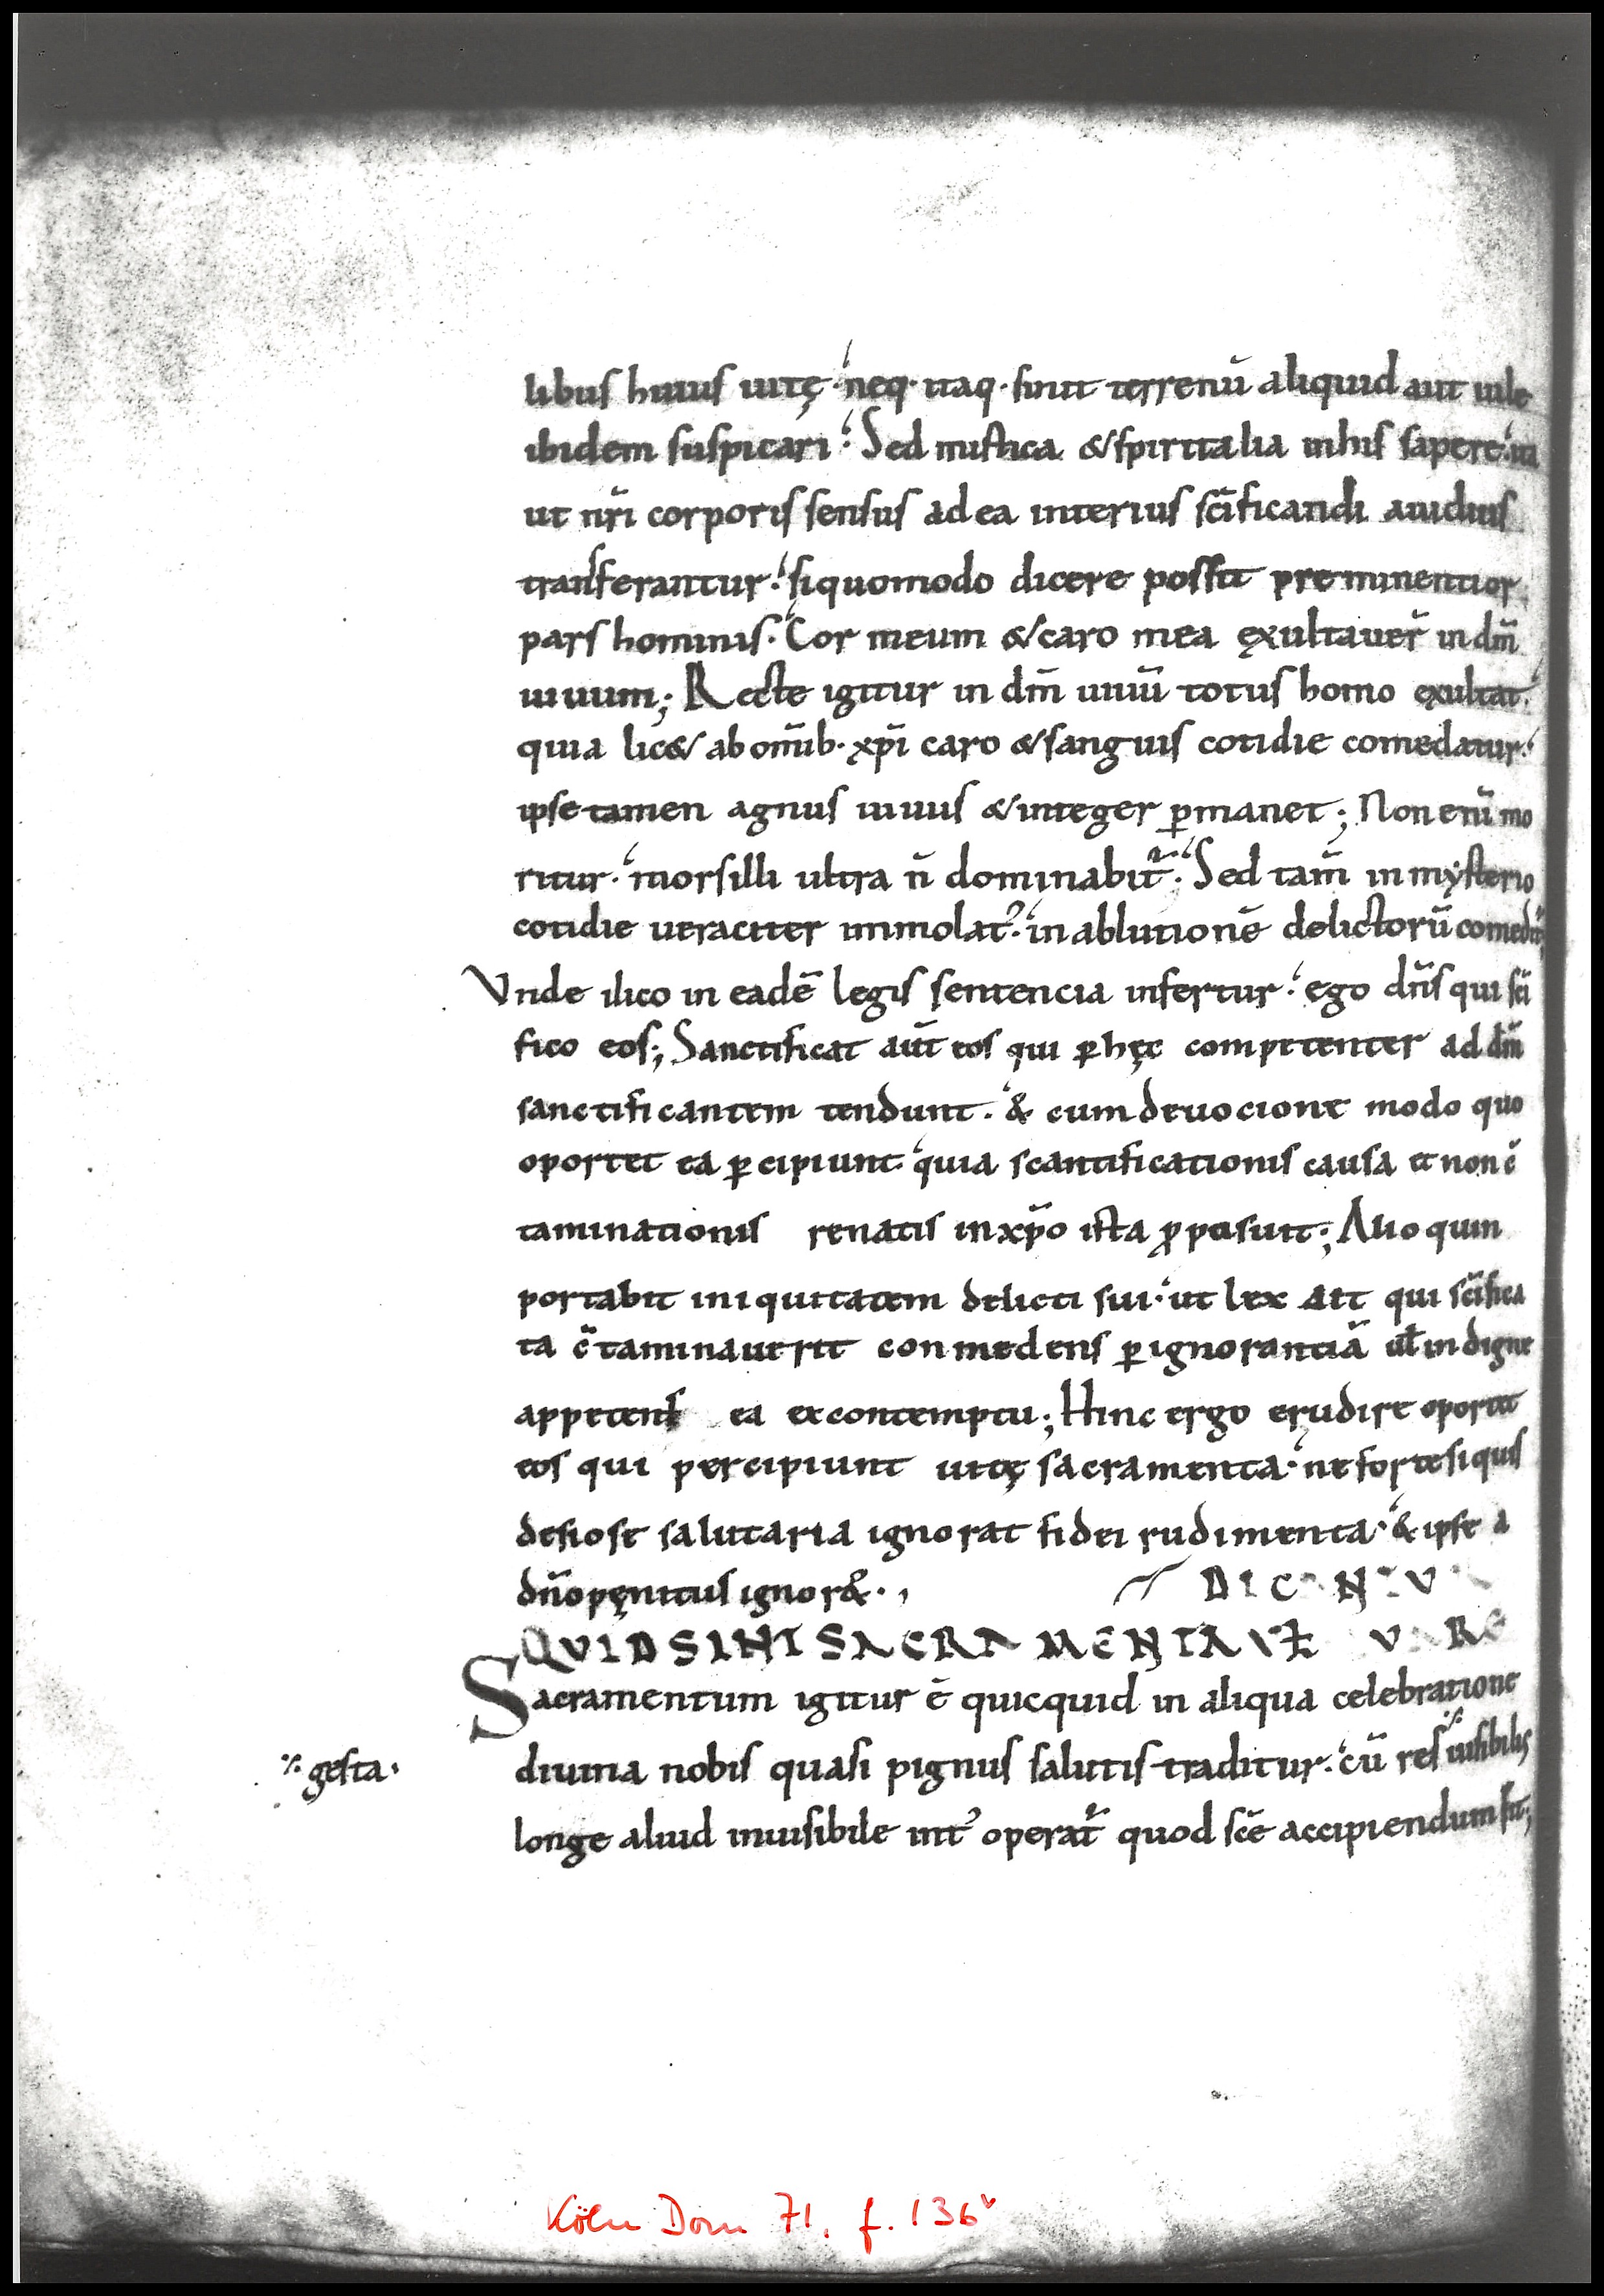 libus huius uitę· neq· itaq· sinit terrenū aliquid aut uile
ibidem suspicari· Sed mistica & spiritalia in his sapere· ita
ut nr̄i corporis sensus ad ea interius scīficandi auidius
transferantur· si quomodo dicere possit preminentior
pars hominis· Cor meum & caro mea exultauer̄ in dm̄
uiuum; Recte igitur in dm̄ uiuū totus homo exultat·
quia lic& ab om̄ib· xp̄i caro & sanguis cotidie comedatur·
ipse tamen agnus uiuus & integer ꝑmanet; Non eni̅ mo
ritur· mors illi ultra n̄ dominabit̄· Sed tam̄ in mẏsterio
cotidie ueraciter immolat᷒· in ablutionē delictorū comedit̄;
Vnde ilico in eadē legis sentencia infertur· ego dn̄s qui scī
fico eos; Sanctificat aūt eos qui ꝑ hęc competenter ad dm̄
sanctificantem tendunt· & cum deuocione modo quo
oportet ea ꝑcipiunt· quia scantificationis causa et non c̄
taminationis renatis in xp̄o ista ꝓposuit; Alioquin
portabit iniquitatem delicti sui· ut lex ait qui scīfica
ta c̄taminauerit conmedens ꝑ ignorantiā uł indigne
appetens ea ex contemptu; Hinc ergo erudire oportet
eos qui percipiunt uitę sacramenta· ne forte si quis
desiose salutaria ignorat fidei rudimenta· & ipse a
dn̄o pęnitus ignor&·,
QVID SINT SACRAMENTA VŁ
Sacramentum igitur ē quicquid in aliqua celebratione
diuina nobis quasi pignus salutis traditur· cū res ⁒ uisibilis
⁒ gesta·
longe aliud inuisibile int᷒ operat̄ quod scē accipiendum sit;
Köln Dom 71, f. 136ᵛ